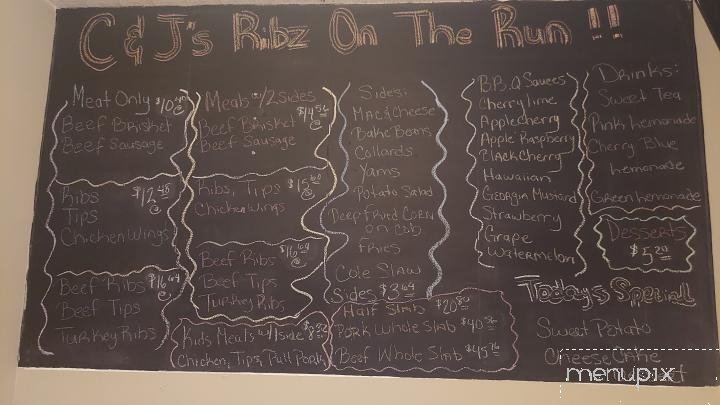 C & J's Ribz On The Run !!
Meat Only $10.40 @
Beef Brisket
Beef Sausage
Ribs $12.48 @
Tips
Chicken Wings
Beef Ribs $16.64 @
Beef Tips
Turkey Ribs
Meals w/2 Sides
Beef Brisket $14.56 @
Beef Sausage
Ribs, Tips $15.60 @
Chicken Wings
Beef Ribs $16.64 @
Beef Tips
Turkey Ribs
Kids Meals w/1 side $8.32
Chicken, Tips, Pull Pork
Sides:
Mac & Cheese
Bake Beans
Collards
Yams
Potato Salad
Deep Fried Corn
on cob
Fries
Cole Slaw
Sides $3.64
Half Slab $20.80
Pork Whole Slab $40.56
Beef Whole Slab $45.76
B.B.Q Sauces
Cherry Lime
Apple Cherry
Apple Raspberry
Black Cherry
Hawaiian
Georgia Mustard
Strawberry
Grape
Watermelon
Drinks:
Sweet Tea
Pink Lemonade
Cherry Blue
Lemonade
Green Lemonade
Desserts
$5.20
Todays Special
Sweet Potato
Cheese Cake
menupix